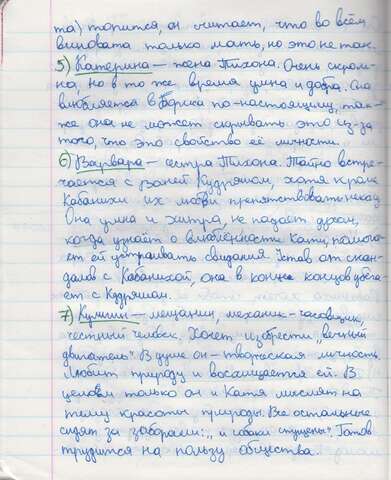 та) топится, он считает, что во всём
виновата только мать, но это не так.
5) Катерина – жена Тихона. Очень скром-
на, но в то же время умна и добра. Она
влюбляется в Бориса по-настоящему, так-
же она не может скрывать это из-за
того, что это свойство её личности.
6) Варвара – сестра Тихона. Тайно встре-
чается с Ваней Кудряшом, хотя кроме
Кабанихи их любви препятствовать некому
Она умна и хитра, не падает духом,
когда узнаёт о влюблённости Кати, помога-
ет ей устраивать свидания. Устав от скан-
далов с Кабанихой, она в конце концов убега-
ет с Кудряшом.
7) Кулигин – мещанин, механик-часовщик,
честный человек. Хочет изобрести „вечный
двигатель". В душе он – творческая личность
Любит природу и восхищается ей. В
целом только он и Катя мыслят на
тему красоты природы. Все остальные
сидят за заборами: „и собаки спущены". Готов
трудится на пользу общества.